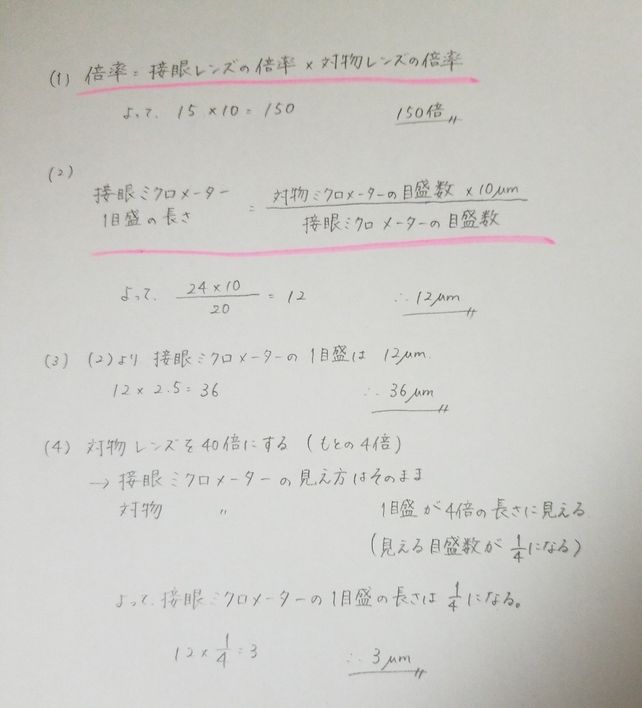 (1) 倍率 = 接眼レンズの倍率 × 対物レンズの倍率
よって、 15 × 10 = 150 150倍〃
(2)
接眼ミクロメーター 1目盛の長さ = 対物ミクロメーターの目盛数 × 10μm / 接眼ミクロメーターの目盛数
よって、 24 × 10 / 20 = 12 ∴ 12μm〃
(3) (2)より 接眼ミクロメーターの1目盛は 12μm.
12 × 2.5 = 36 ∴ 36μm〃
(4) 対物レンズを40倍にする (もとの4倍)
→ 接眼ミクロメーターの見え方はそのまま
対物 〃 1目盛が4倍の長さに見える
(見える目盛数が 1/4 になる)
よって、接眼ミクロメーターの1目盛の長さは 1/4 になる。
12 × 1/4 = 3 ∴ 3μm〃